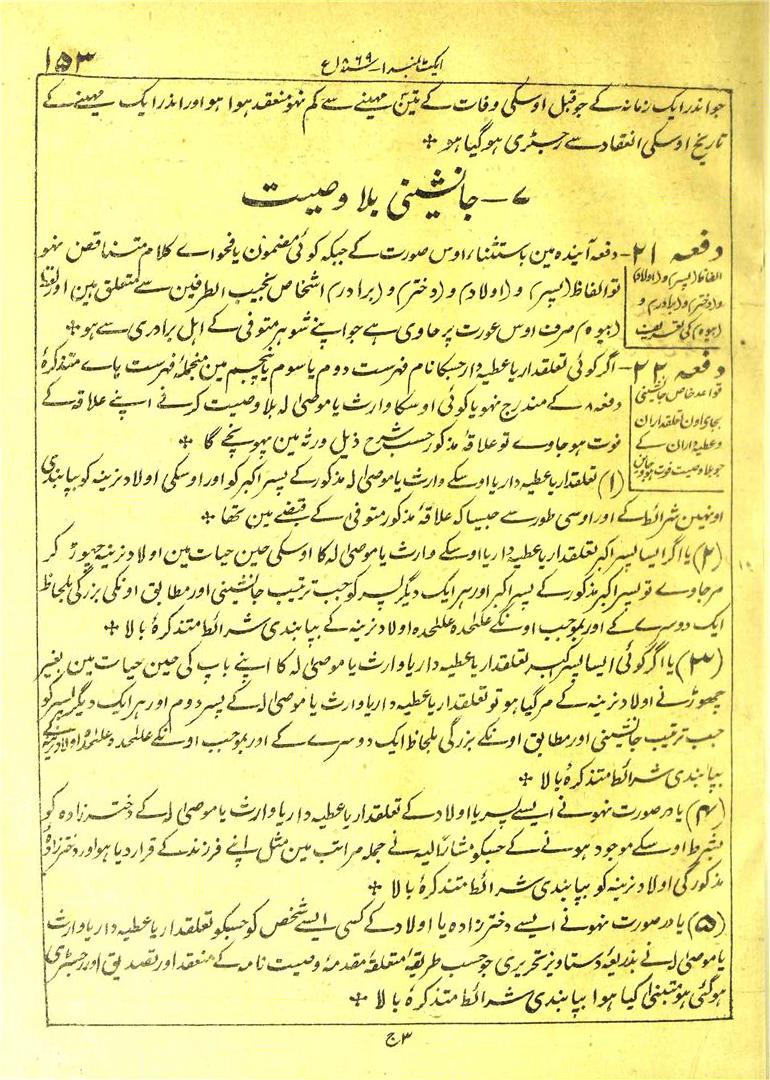 ایکٹ نمبر ۱ سنہ ۱۸۶۹ع
۱۵۳
جو اندر ایک زمانہ کے جو قبل اوسکی وفات کے تین مہینے سے کم نہو منعقد ہوا ہو اور اندر ایک مہینے کے
تاریخ اوسکی انعقاد سے رجسٹری ہو گیا ہو
۷ - جانشینی بلا وصیت
دفعہ ۲۱ - دفعہ آیندہ مین باستثناء اوس صورت کے جبکہ کوئی مضمون یا فحواے کلام متناقض نہو
الفاظ (پسر) و (اولاد)
و (دختر) و (برادر) و
(بیوہ) کی تعریف
تو الفاظ (پسر) و (اولاد) و (دختر) و (برادر) اشخاص نجیب الطرفین سے متعلق ہین اور لفظ
(بیوہ) صرف اوس عورت پر حاوی ہے جو اپنے شوہر متوفی کے اہل برادری سے ہو
دفعہ ۲۲ - اگر کوئی تعلقدار یا عطیہ دار جسکا نام فہرست دوم یا سوم یا پنجم مین منجملہ فہرست ہاے متذکرہ
قواعد خاص جانشینی
بجای اون تعلقداران
و عطیہ داران کے
جو بلا وصیت فوت ہو جائین
دفعہ ۸ کے مندرج نہو یا کوئی اوسکا وارث یا موصیٰ لہ بلا وصیت کرنے اپنے علاقہ کے
فوت ہو جاوے تو علاقہ مذکور حسب شرح ذیل ورثہ مین پہونچے گا
(۱) تعلقدار یا عطیہ دار یا اوسکے وارث یا موصیٰ لہ مذکور کے پسر اکبر کو اور اوسکی اولاد نرینہ کو بپابندی
اونہین شرائط کے اور اوسی طور سے جیسا کہ علاقہ مذکور متوفی کے قبضے مین تھا
(۲) یا اگر ایسا پسر اکبر تعلقدار یا عطیہ دار یا اوسکے وارث یا موصیٰ لہ کا اوسکی حین حیات مین اولاد نرینہ چھوڑ کر
مر جاوے تو پسر اکبر مذکور کے پسر اکبر اور ہر ایک دیگر پسر کو حسب ترتیب جانشینی اور مطابق اونکی بزرگی بلحاظ
ایک دوسرے کے اور بموجب اونکے علٰحدہ علٰحدہ اولاد نرینہ کے بپابندی شرائط متذکرہ بالا
(۳) یا اگر کوئی ایسا پسر اکبر تعلقدار یا عطیہ دار یا وارث یا موصیٰ لہ کا اپنے باپ کی حین حیات مین بغیر
چھوڑنے اولاد نرینہ کے مر گیا ہو تو تعلقدار یا عطیہ دار یا وارث یا موصیٰ لہ کے پسر دوم اور ہر ایک دیگر پسر کو
حسب ترتیب جانشینی اور مطابق اونکے بزرگی بلحاظ ایک دوسرے کے اور بموجب اونکے علٰحدہ علٰحدہ اولاد نرینہ کے
بپابندی شرائط متذکرہ بالا
(۴) یا در صورت نہونے ایسے پسر یا اولاد کے تعلقدار یا عطیہ دار یا وارث یا موصیٰ لہ کے دختر زادہ کو
بشرط اوسکے موجود ہونے کے جسکو مشارٌ الیہ نے جملہ مراتب مین مثل اپنے فرزند کے قرار دیا ہو اور دختر زادہ
مذکور کی اولاد نرینہ کو بپابندی شرائط متذکرہ بالا
(۵) یا در صورت نہونے ایسے دختر زادہ یا اولاد کے کسی ایسے شخص کو جسکو تعلقدار یا عطیہ دار یا وارث
یا موصیٰ لہ نے بذریعہ دستاویز تحریری جو حسب طریقہ متعلقہ مقدمہ وصیت نامہ کے منعقد اور تصدیق اور رجسٹری
ہو گئی ہو متبنیٰ کیا ہوا بپابندی شرائط متذکرہ بالا
۳ج